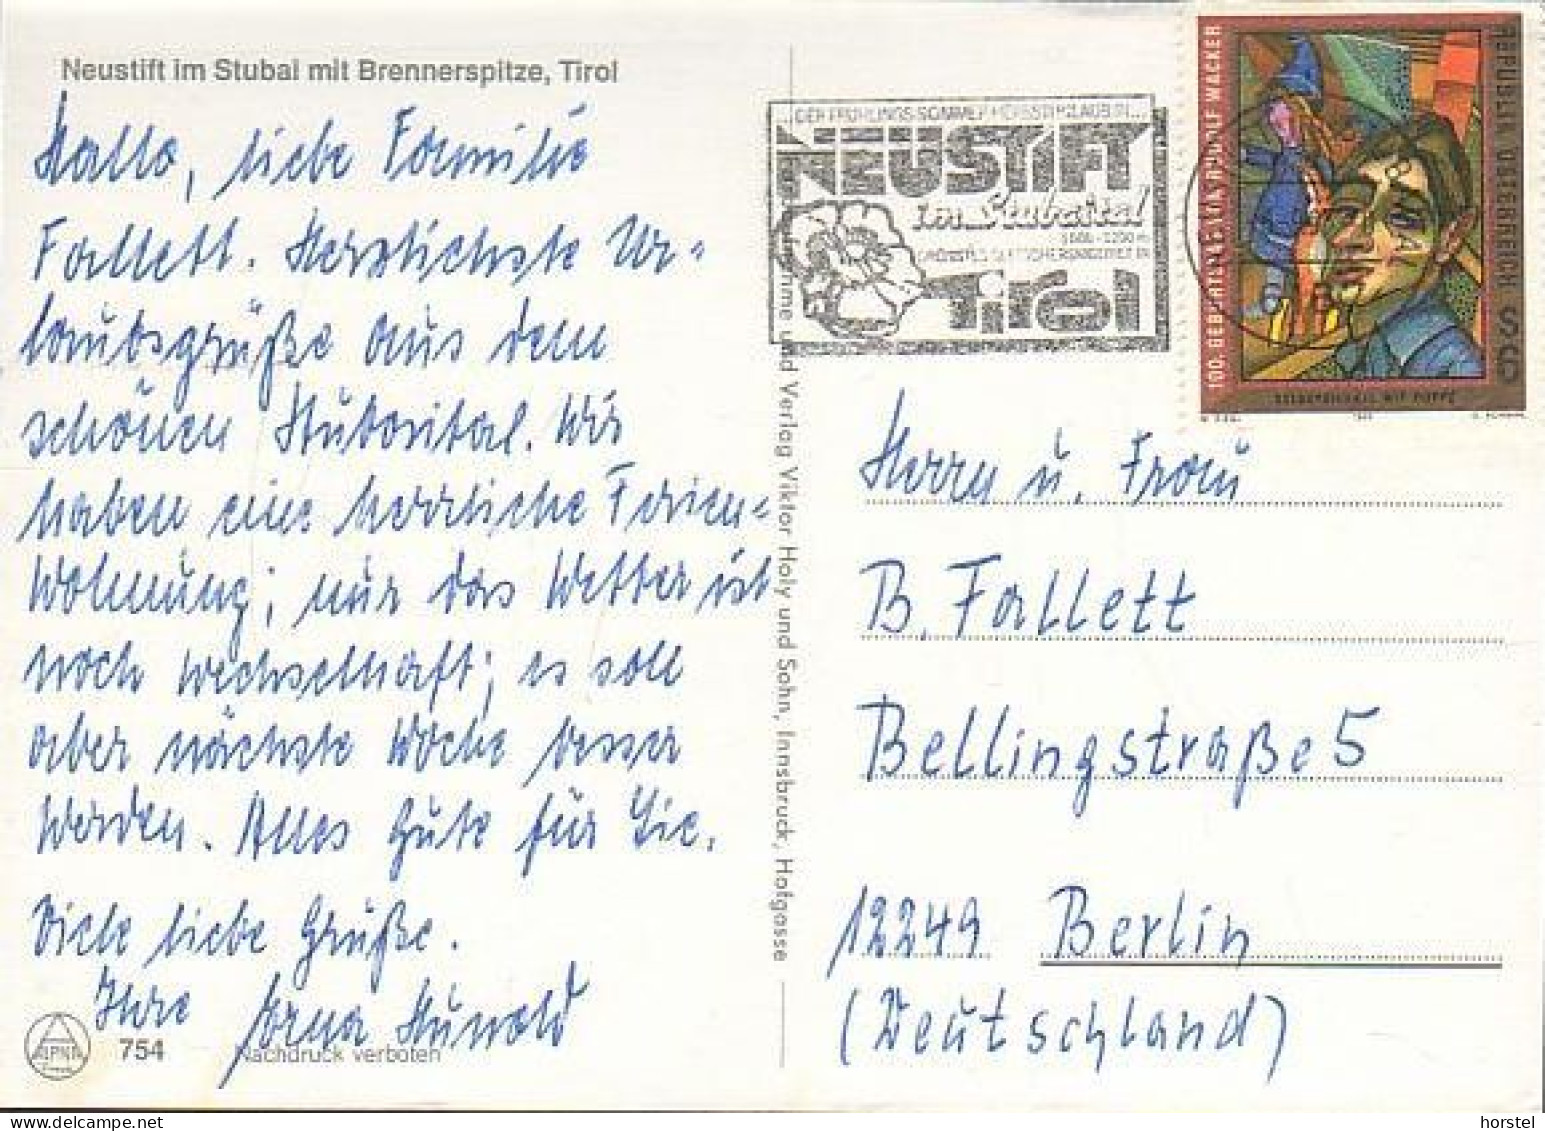 Neustift im Stubai mit Brennerspitze, Tirol
Hallo, liebe Familie
Fallett. Herzlichste Ur-
laubsgrüße aus dem
schönen Stubaital. Wir
haben eine herrliche Ferien-
Wohnung; nur das Wetter ist
noch wechselhaft; es soll
aber nächste Woche besser
werden. Alles Gute für Sie.
Viele liebe Grüße.
Ihre
754
Nachdruck verboten
und Verlag Viktor Holy und Sohn, Innsbruck, Hofgasse
NEUSTIFT
im Stubaital
Tirol
100. GEBURTSTAG VON RUDOLF WACKER
REPUBLIK ÖSTERREICH
SELBSTBILDNIS MIT PUPPE
Herrn u. Frau
B. Fallett
Bellingstraße 5
12249 Berlin
(Deutschland)
horstel